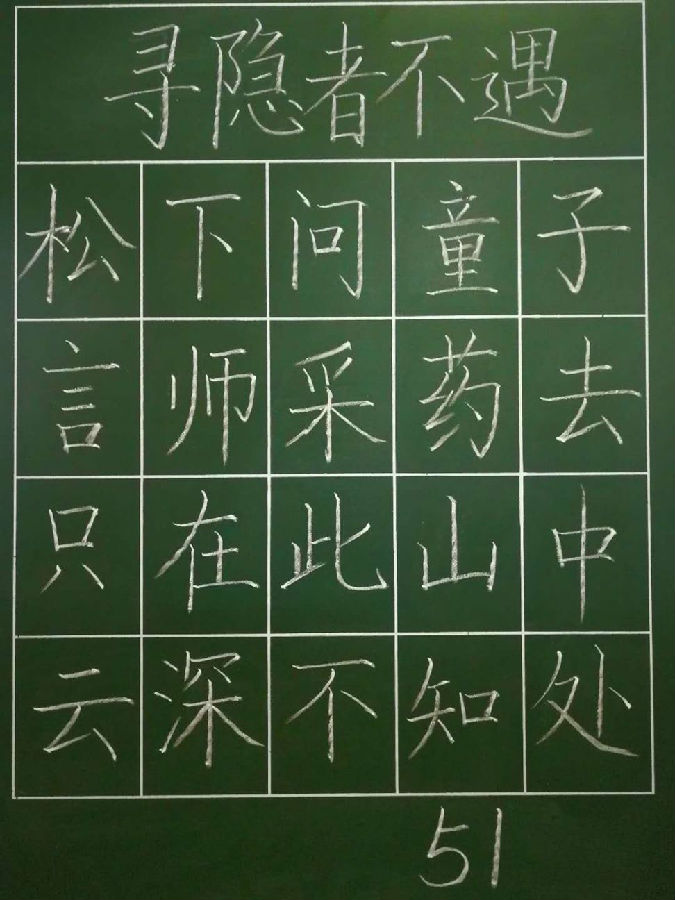 寻隐者不遇
松下问童子
言师采药去
只在此山中
云深不知处
51